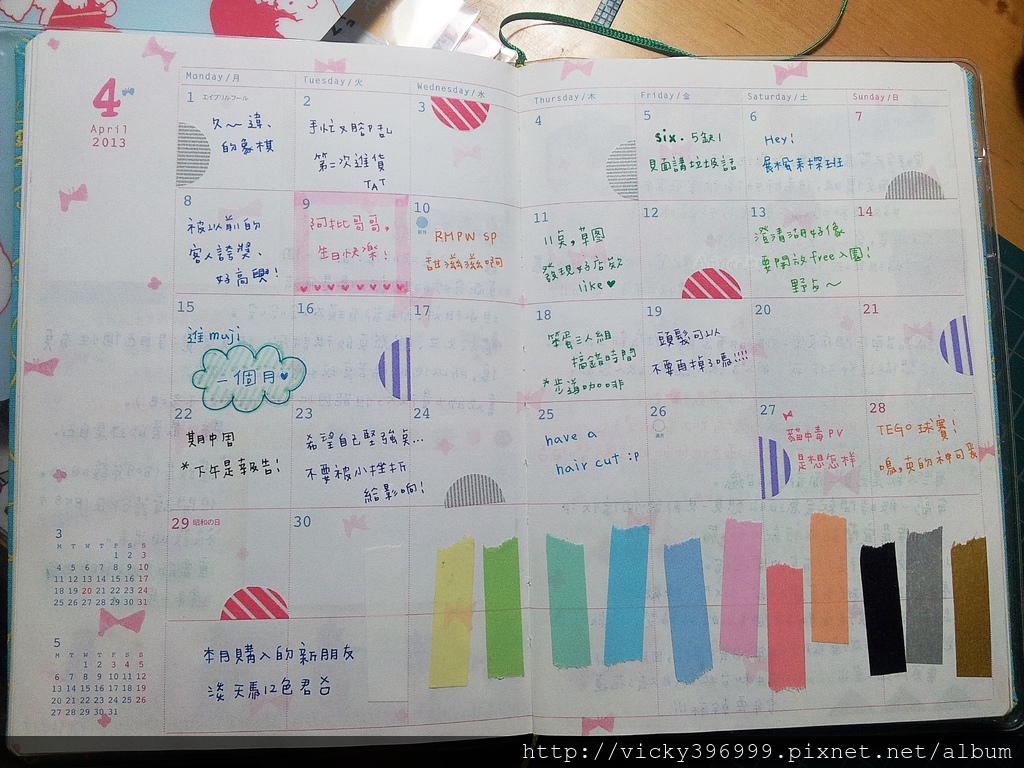 4
April
2013
Monday/月
Tuesday/火
Wednesday/水
Thursday/木
Friday/金
Saturday/土
Sunday/日
1 エイプリルフール
久～違、
的象棋
2
手忙又腳亂
第二次進貨
TAT
3
4
5
six. 5缺1
見面講垃圾話
6
Hey!
晨楓來探班
7
8
被以前的
客人誇獎、
好高興!
9
阿批哥哥,
生日快樂!
10
RMPW SP
甜滋滋滋啊
11
11頁,草圖
發現好店家
like♥
12
13
澄清湖好像
要開放free入園!
野占～
14
15
進muji
一個月♥
16
17
18
笨蛋三人組
搞錯時間
*步道咖啡
19
頭髮可以
不要再掉了嗎!!!!
20
21
22
期中周
*下午是報告!
23
希望自己堅強点...
不要被小挫折
給影响!
24
25
have a
hair cut :p
26
27
貓中毒 PV
是想怎樣
28
TEGO 球賽!
嗚,爽的神司
29 昭和の日
30
本月購入的新朋友
淡天馬12色君
3
M T W T F S S
1 2 3
4 5 6 7 8 9 10
11 12 13 14 15 16 17
18 19 20 21 22 23 24
25 26 27 28 29 30 31
5
M T W T F S S
1 2 3 4 5
6 7 8 9 10 11 12
13 14 15 16 17 18 19
20 21 22 23 24 25 26
27 28 29 30 31
http://vicky396999.pixnet.net/album